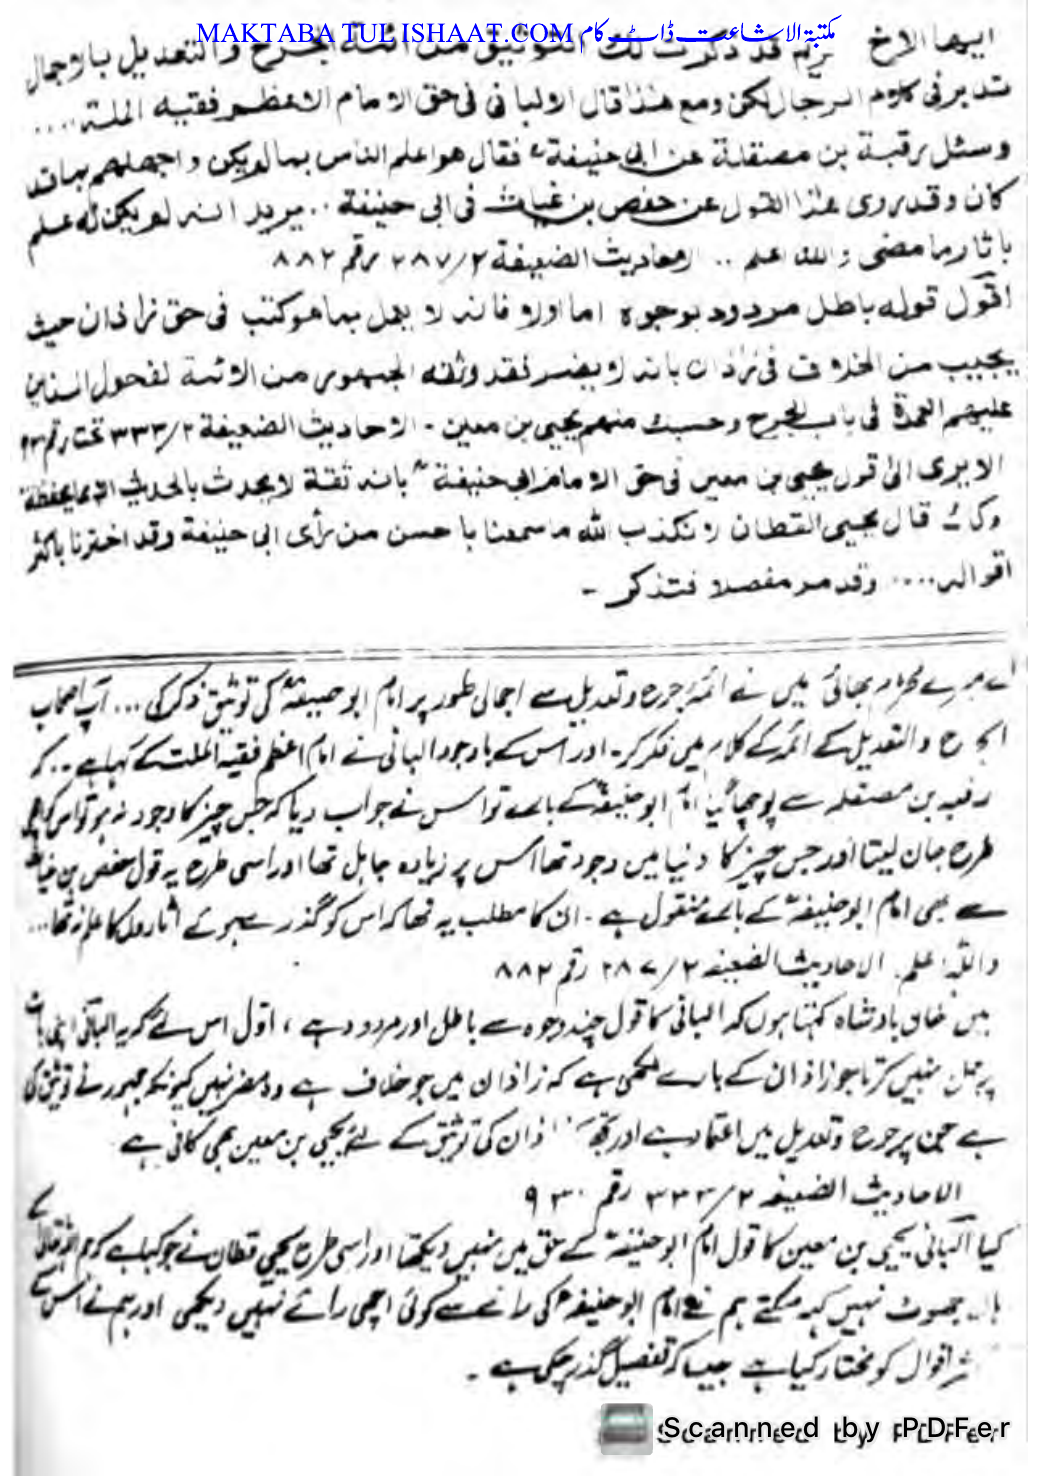 MAKTABA TUL ISHAAT.COM مکتبۃ الاشاعت ڈاٹ کام
ایہا الاخ قد ذکرت لک التوثیق من ائمۃ الجرح والتعدیل بالاجمال
فتدبر فی کلام الرجال لکن ومع ھذا قال الالبانی فی حق الامام الاعظم فقیہ الملۃ ....
وسئل رقبۃ بن مصقلۃ عن ابی حنیفۃ فقال ھو اعلم الناس بما لم یکن واجھلھم بما قد
کان وقد روی ھذا القول عن حفص بن غیاث فی ابی حنیفۃ .. یرید انہ لم یکن لہ علم
باثار ما مضی واللہ اعلم .. الاحادیث الضعیفۃ ۲/۲۸۷ رقم ۸۸۲
اقول قولہ باطل مردود بوجوہ اما اولا فانہ لا یعمل بما ھو کتب فی حق زاذان حیث
یجیب من الخلاف فی زاذان بانہ لا یضر فقد وثقہ الجمھور من الائمۃ الفحول الذین
علیھم العمدۃ فی باب الجرح وحسبک منھم یحیی بن معین - الاحادیث الضعیفۃ ۲/۳۳۳ تحت رقم
الا یری الی قول یحیی بن معین فی حق الامام ابی حنیفۃ بانہ ثقۃ لا یحدث بالحدیث الا بما یحفظہ
قال یحیی القطان لا نکذب اللہ ما سمعنا باحسن من رأی ابی حنیفۃ وقد اخذنا باکثر
اقوالہ .... وقد مر مفصلا فتذکر -
اے میرے محترم بھائی میں نے ائمہ جرح و تعدیل سے اجمالی طور پر امام ابو حنیفہ کی توثیق ذکر کی ... آپ اصحاب
الجرح والتعدیل کے ائمہ کے کلام میں فکر کر - اور اس کے باوجود البانی نے امام اعظم فقیہ الملت کے کہا ہے .. کہ
رقبہ بن مصقلہ سے پوچھا گیا امام ابو حنیفہ کے بارے تو اس نے جواب دیا کہ جس چیز کا وجود نہ ہو تو اس کو اچھی
طرح جان لیتا اور جس چیز کا دنیا میں وجود تھا اس پر زیادہ جاہل تھا اور اسی طرح یہ قول حفص بن غیاث
سے بھی امام ابو حنیفہ کے بارے منقول ہے - ان کا مطلب یہ تھا کہ اس کو گذرے ہوئے آثاروں کا علم نہ تھا ...
واللہ اعلم. الاحادیث الضعیفہ ۲/۲۸۷ رقم ۸۸۲
میں خان بادشاہ کہتا ہوں کہ البانی کا قول چند وجوہ سے باطل اور مردود ہے ، اوّل اس لئے کہ یہ البانی اپنی بات
پر عمل نہیں کرتا جو زاذان کے بارے لکھی ہے کہ زاذان میں جو خلاف ہے وہ مضر نہیں کیونکہ جمہور نے توثیق کی
ہے جن پر جرح و تعدیل میں اعتماد ہے اور تجھے زاذان کی توثیق کے لئے یحیی بن معین بھی کافی ہے
الاحادیث الضعیفہ ۲/۳۳۳ رقم ۹۳۰
کیا البانی یحیی بن معین کا قول امام ابو حنیفہ کے حق میں نہیں دیکھتا اور اسی طرح یحیی قطان نے جو کہا ہے کہ ہم اللہ تعالی کے
ہاں جھوٹ نہیں کہہ سکتے ہم نے امام ابو حنیفہ کی رائے سے کوئی اچھی رائے نہیں دیکھی اور ہم نے اس کے
اقوال کو مختار کیا ہے جیسا کہ تفصیل گذر چکی ہے -
Scanned by PDFer